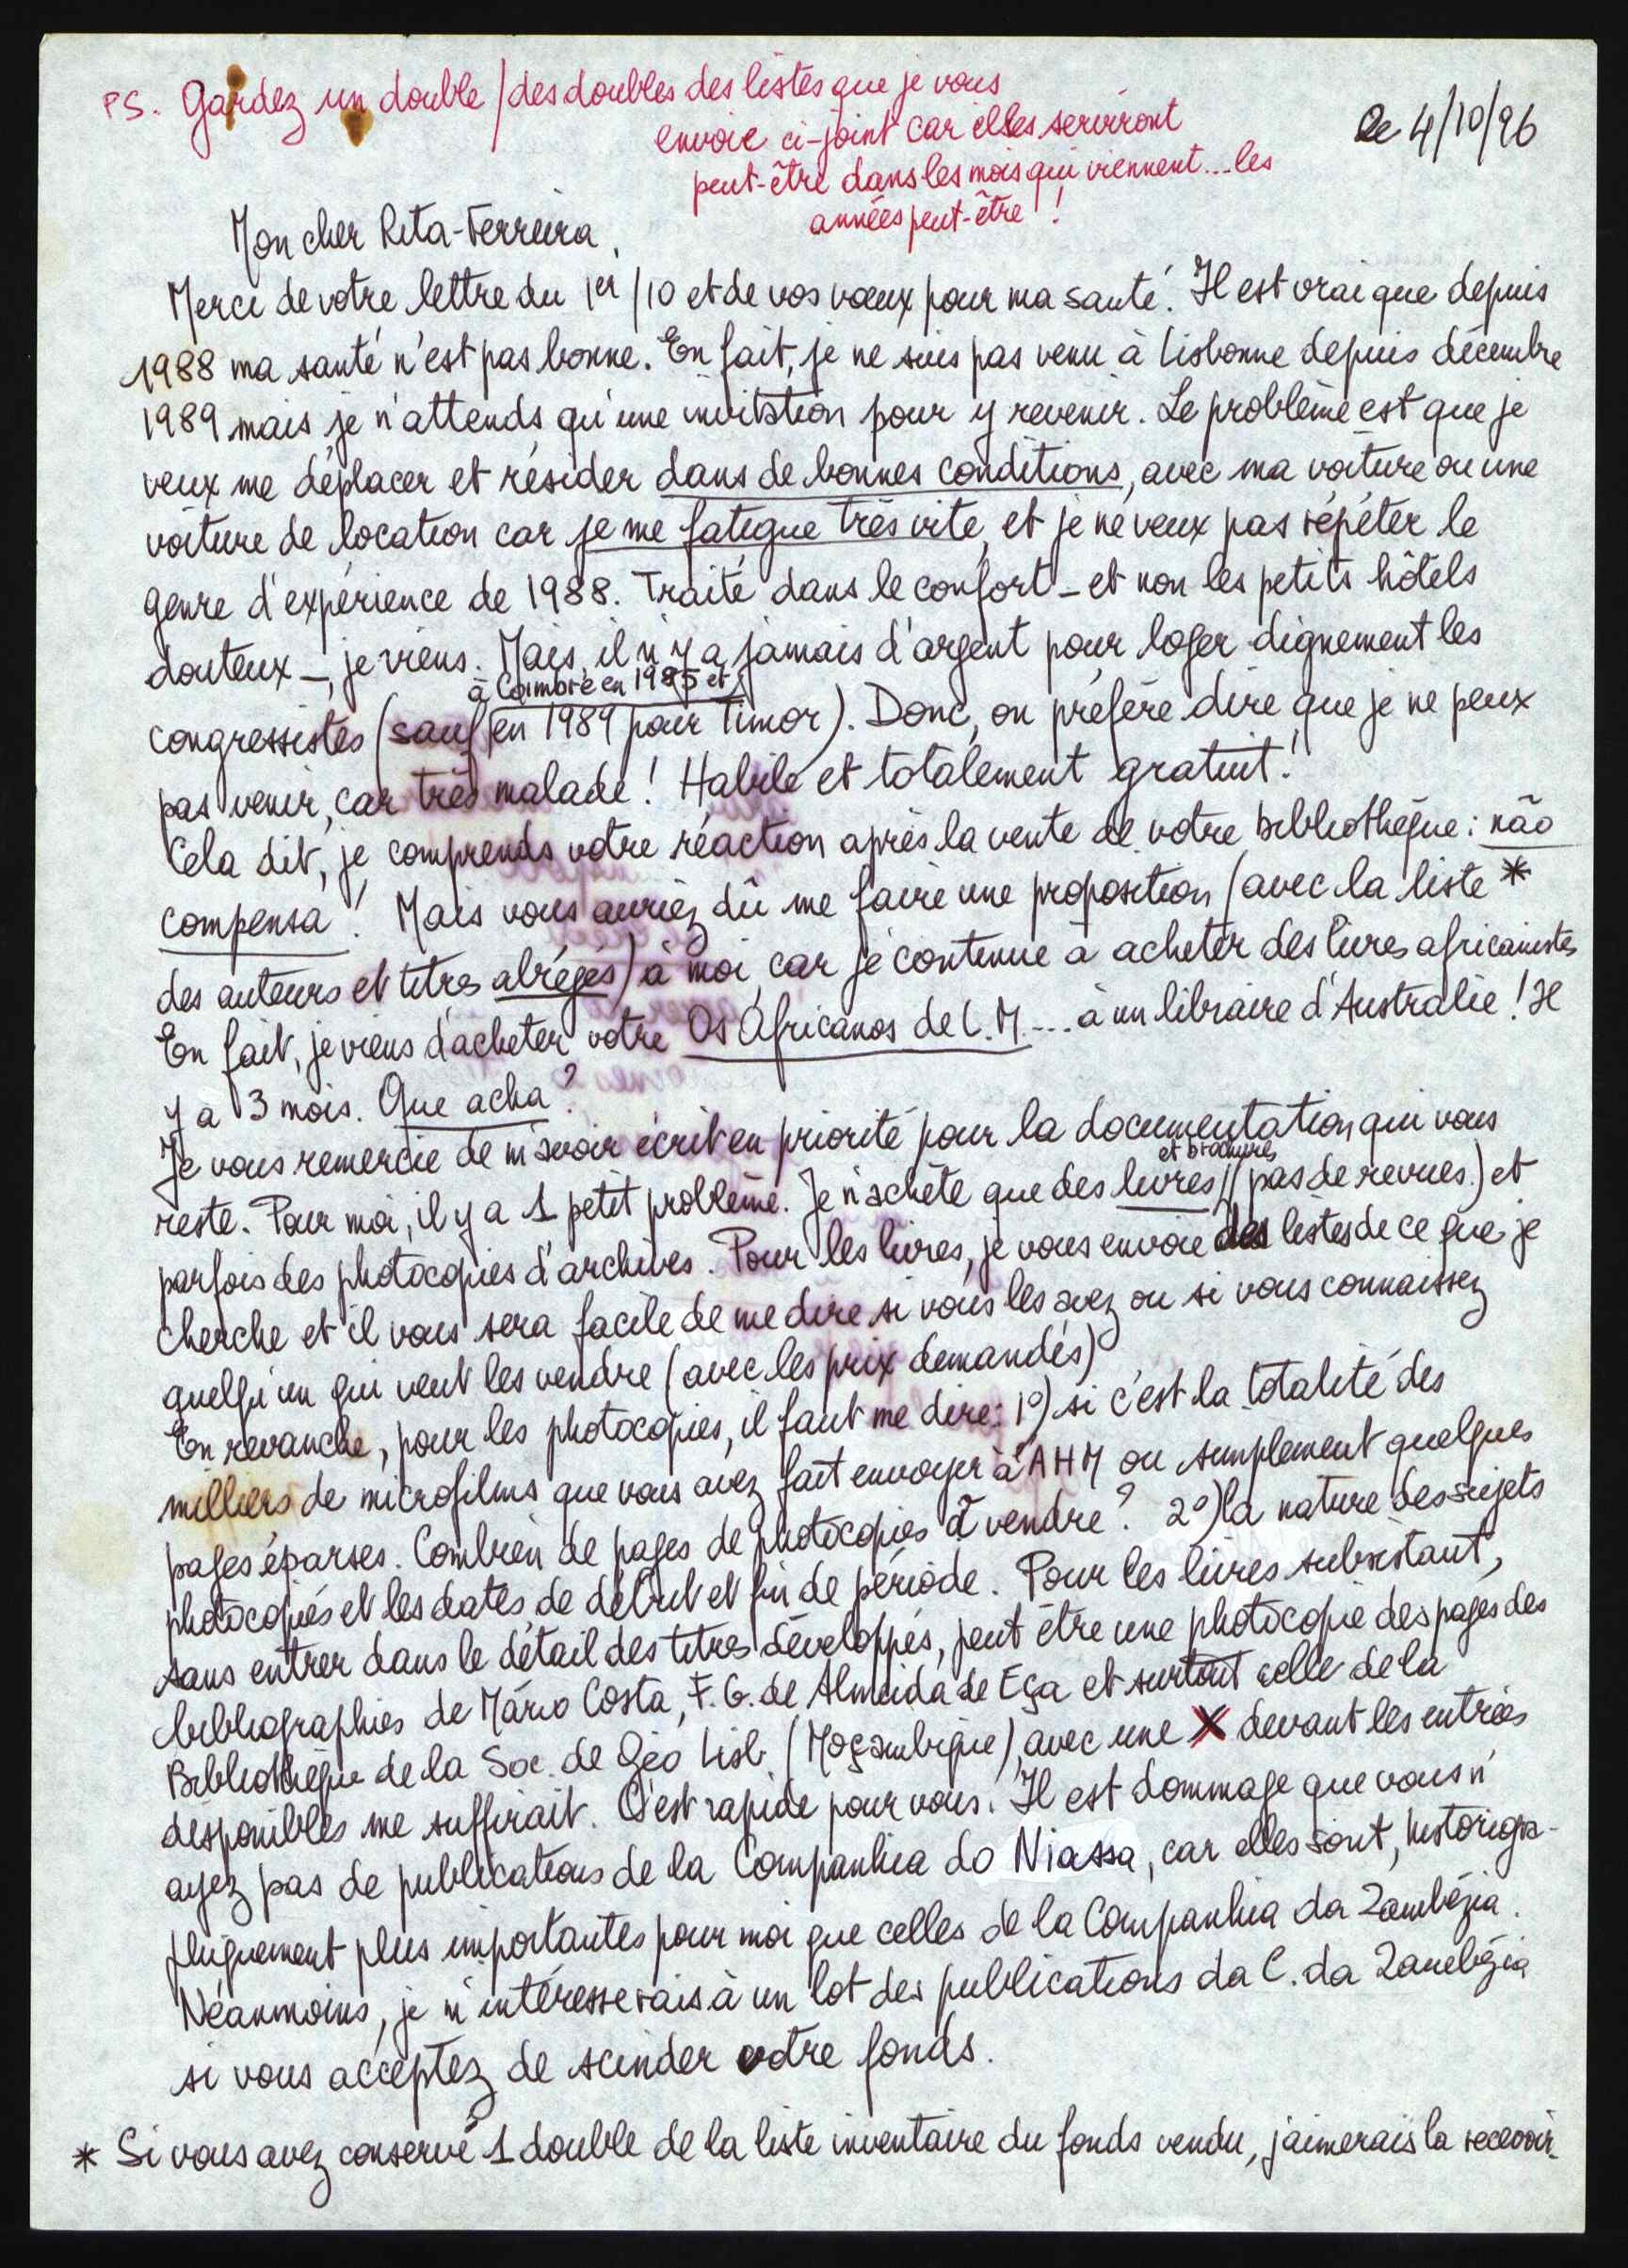 PS. Gardez un double / des doubles des listes que je vous
envoie ci-joint car elles serviront
peut-être dans les mois qui viennent... les
années peut-être !
le 4/10/96
Mon cher Rita-Ferreira,
Merci de votre lettre du 1er/10 et de vos vœux pour ma santé. Il est vrai que depuis
1988 ma santé n'est pas bonne. En fait, je ne suis pas venu à Lisbonne depuis décembre
1989 mais je n'attends qu'une invitation pour y revenir. Le problème est que je
veux me déplacer et résider dans de bonnes conditions, avec ma voiture ou une
voiture de location car je me fatigue très vite, et je ne veux pas répéter le
genre d'expérience de 1988. Traité dans le confort – et non les petits hôtels
douteux –, je viens. Mais, il n'y a jamais d'argent pour loger dignement les
à Coimbre en 1985 et
congressistes (sauf en 1989 pour Timor). Donc, on préfère dire que je ne peux
pas venir, car très malade ! Habile et totalement gratuit !
Cela dit, je comprends votre réaction après la vente de votre bibliothèque : não
compensa ! Mais vous auriez dû me faire une proposition (avec la liste *
des auteurs et titres abrégés) à moi car je continue à acheter des livres africanistes
En fait, je viens d'acheter votre Os Africanos de L.M.... à un libraire d'Australie ! Il
y a 3 mois. Que acha ?
Je vous remercie de m'avoir écrit en priorité pour la documentation qui vous
et brochures
reste. Pour moi, il y a 1 petit problème. Je n'achète que des livres (pas de revues) et
parfois des photocopies d'archives. Pour les livres, je vous envoie des listes de ce que je
cherche et il vous sera facile de me dire si vous les avez ou si vous connaissez
quelqu'un qui veut les vendre (avec les prix demandés)
En revanche, pour les photocopies, il faut me dire : 1°) si c'est la totalité des
milliers de microfilms que vous avez fait envoyer à AHM ou simplement quelques
pages éparses. Combien de pages de photocopies à vendre ? 2°) la nature des sujets
photocopiés et les dates de début et fin de période. Pour les livres subsistant,
sans entrer dans le détail des titres développés, peut être une photocopie des pages des
bibliographies de Mário Costa, F. G. de Almeida de Eça et surtout celle de la
Bibliothèque de la Soc. de Géo Lisb. (Moçambique), avec une X devant les entrées
disponibles me suffirait. C'est rapide pour vous. Il est dommage que vous n'
ayez pas de publications de la Companhia do Niassa, car elles sont, historiogra-
phiquement plus importantes pour moi que celles de la Companhia da Zambézia.
Néanmoins, je m'intéresserais à un lot des publications da C. da Zambézia
si vous acceptez de scinder votre fonds.
* Si vous avez conservé 1 double de la liste inventaire du fonds vendu, j'aimerais la recevoir.